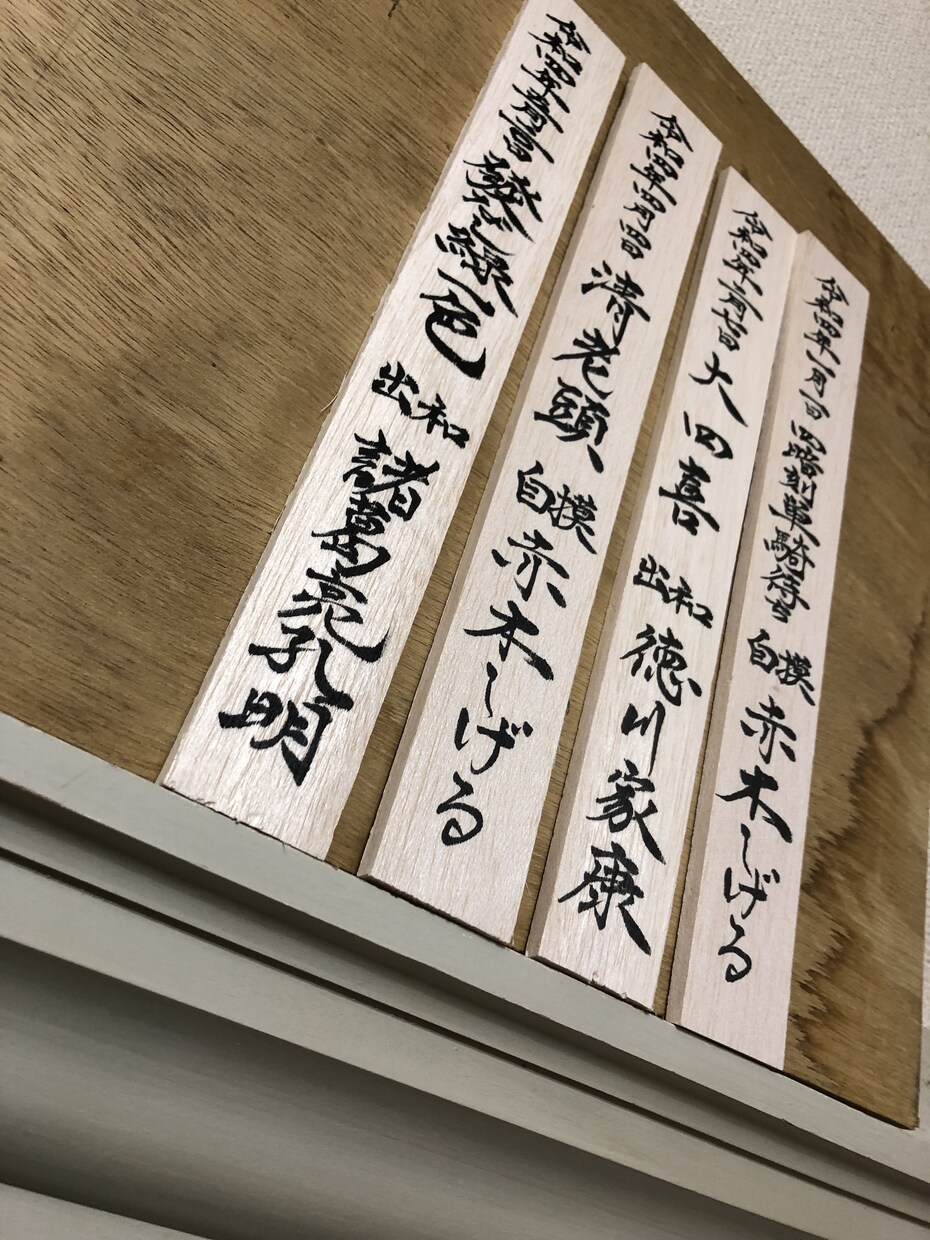 令和四年一月一日 四暗刻単騎待ち 自摸 赤木しげる
令和四年二月七日 大四喜 出和 徳川家康
令和四年四月四日 清老頭 自摸 赤木しげる
令和四年五月五日 發なし緑一色 出和 諸葛亮孔明